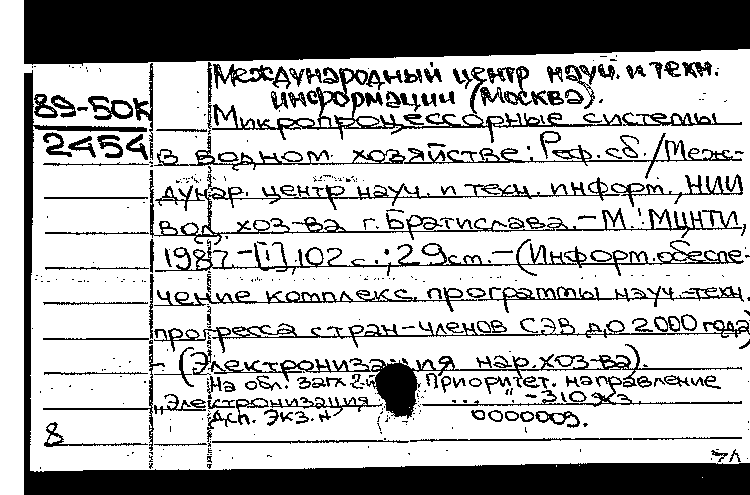 Международный центр науч. и техн.
информации (Москва).
89-50К
2454
Микропроцессорные системы
в водном хозяйстве: Реф. сб. / Меж-
дунар. центр науч. и техн. информ., НИИ
вод. хоз-ва г. Братислава. - М.: МЦНТИ,
1987. - [1], 102 с.; 29 см. - (Информ. обеспе-
чение комплекс. программы науч.-техн.
прогресса стран-членов СЭВ до 2000 года)
- (Электронизация нар. хоз-ва).
На обл. загл. 2й Приоритет. направление
„Электронизация ... " - 310 экз.
Дсп. экз. N 0000009.
8